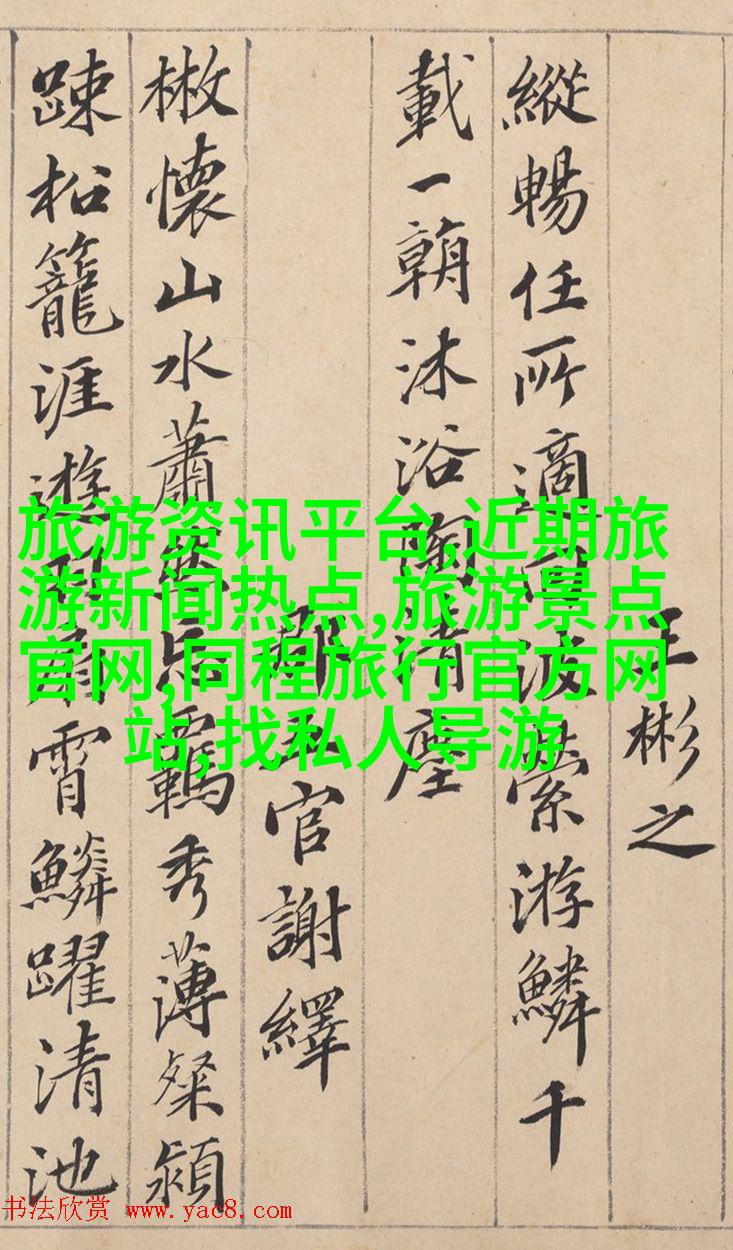 王彬之
縱暢任所適回波縈游鱗千
載一朝沐浴陶清塵
郡五官謝繹
散懷山水蕭然忘羈秀薄粲穎
踈松籠涯遊羽扇霄鱗躍清池
旅游资讯平台,近期旅
游新闻热点,旅游景点
官网,同程旅行官方网
站,找私人导游
书法欣赏 www.yac8.com